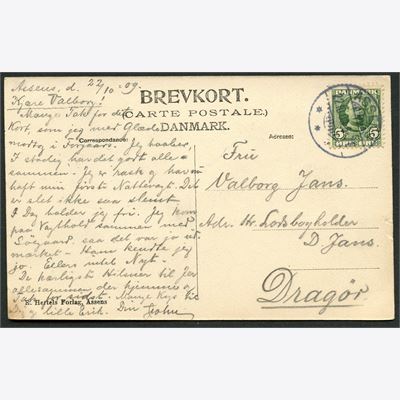 Assens, d. 22/10-09.
Kjære Valborg!
Mange Tak for dit
Kort, som jeg med Glæde
modtog i Forgaars. Jeg haaber,
I stadig har det godt alle-
sammen. Jeg er rask og har nu
haft min første Nattevagt. Det
er slet ikke saa slemt
I Dag holder jeg fri. Jeg kom
paa Vagthold sammen med
saa det var jo ud-
market - Ham kendte jeg
jo. Ellers intet Nyt.
De kærligste Hilsner til Jer
allesammen der hjemme og
Tak for sidst. Mange Kys til
Dig og lille Erik. Din John
BREVKORT.
(CARTE POSTALE.)
DANMARK.
Correspondance:
Adresse:
DANMARK
5 5
Fru
Valborg Jans.
Adr. Hr. Lodsbogholder
D. Jans.
Dragör
R. Hertels Forlag, Assens